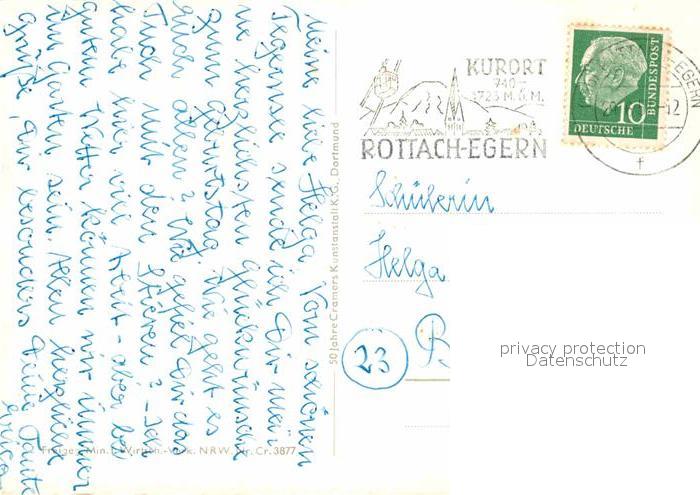 Meine liebe Helga! Vom schönen
Tegernsee sende ich Dir mei-
ne herzlichsten Glückwünsche
zum Geburtstag. Wie geht es
Euch allen? Wie gefiel Dir das
mit den ? - Ich
habe hier viel Arbeit - aber bei
gutem Wetter können wir immer
im Garten sein. Allen herzliche
Grüße, Dir besonders Deine Tante
Erica
50 Jahre Cramers Kunstanstalt K.G., Dortmund
KURORT
740 -
1723 M.Ü.M.
ROTTACH-EGERN
EGERN
-12
10
DEUTSCHE
BUNDESPOST
Schülerin
Helga
23
privacy protection
Datenschutz
Freigeg. Min. f. Wirtsch.-Verk. NRW. Nr. Cr. 3877